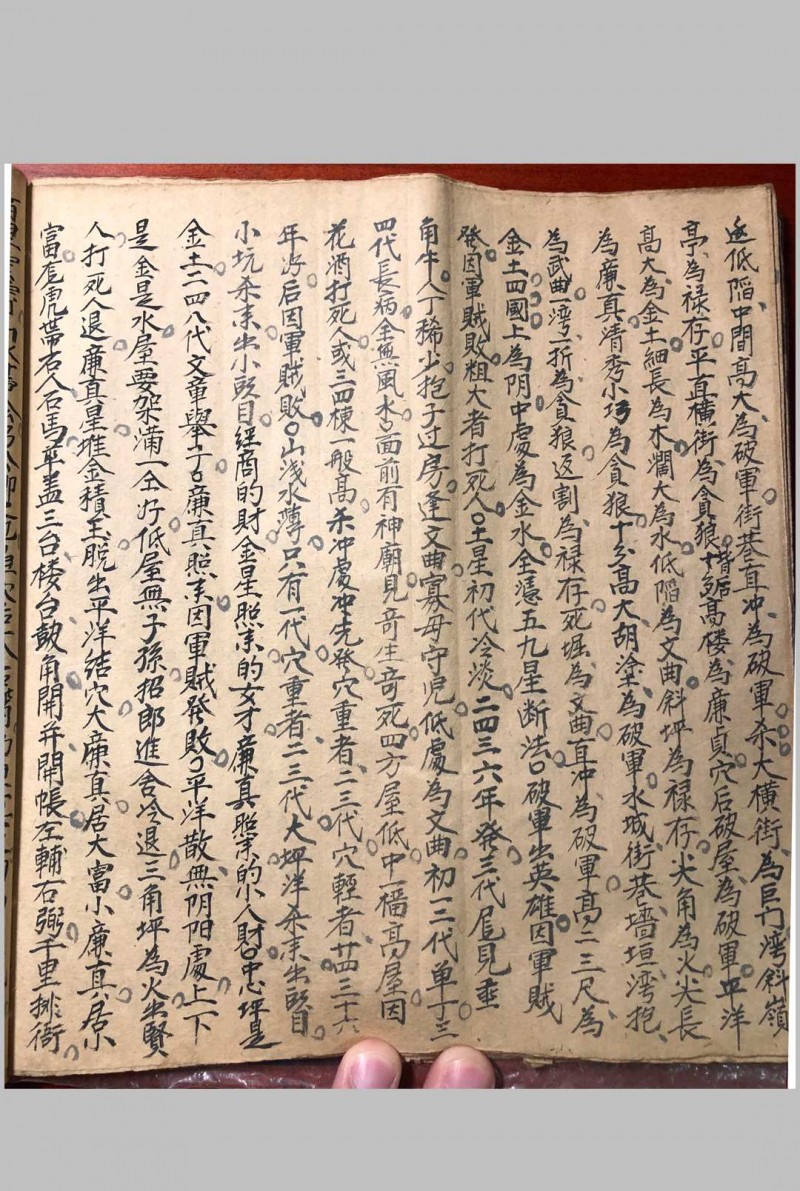 返低陷中間高大為破軍街巷直冲為破軍杀大橫街為巨门湾斜嶺
亭為禄存平直橫街為貪狼十分高楼為廉貞穴后破屋為破軍平洋
高大為金土細長為木濶大為水低陷為文曲斜坪為禄存尖角為火尖長
為廉真清秀小巧為貪狼十分高大胡塗為破軍水城街巷墻垣湾抱
為武曲一湾一折為貪狼返割為禄存死堀為文曲直冲為破軍高二三尺為
金土四國上為阴中處為金水全憑五九星断法破軍出英雄因軍賊
發因軍賊敗粗大者打死人土星初代冷淡二四三六年發三代尾見重
角牛人丁稀少抱子过房逢文曲寡母守児低處為文曲初一二代单丁三
四代長病全無風水面前有神廟見奇生奇死四方屋低中一樓高屋因
花酒打死人或三四棟一般高杀冲處冲先發穴重者二三代穴輕者廿四三十六
年好后因軍賊敗山浅水薄只有一代穴重者二三代大坪洋杀耒出頭目
小坑杀耒出小頭目經商的財金星照耒的女才廉真照耒的小人財中心坪是
金土二四八代文章舉子廉真照耒因軍賊發敗平洋散無阴阳處上下
是金是水屋要架满一全好低屋無子孫招郎進舍冷退三角坪為火出賢
人打死人退廉真星堆金積玉脱出平洋結穴大廉真居大富小廉真居小
富龙虎帶石人石馬平盖三台楼台鼓角開井開帳左輔右弼千里排衙